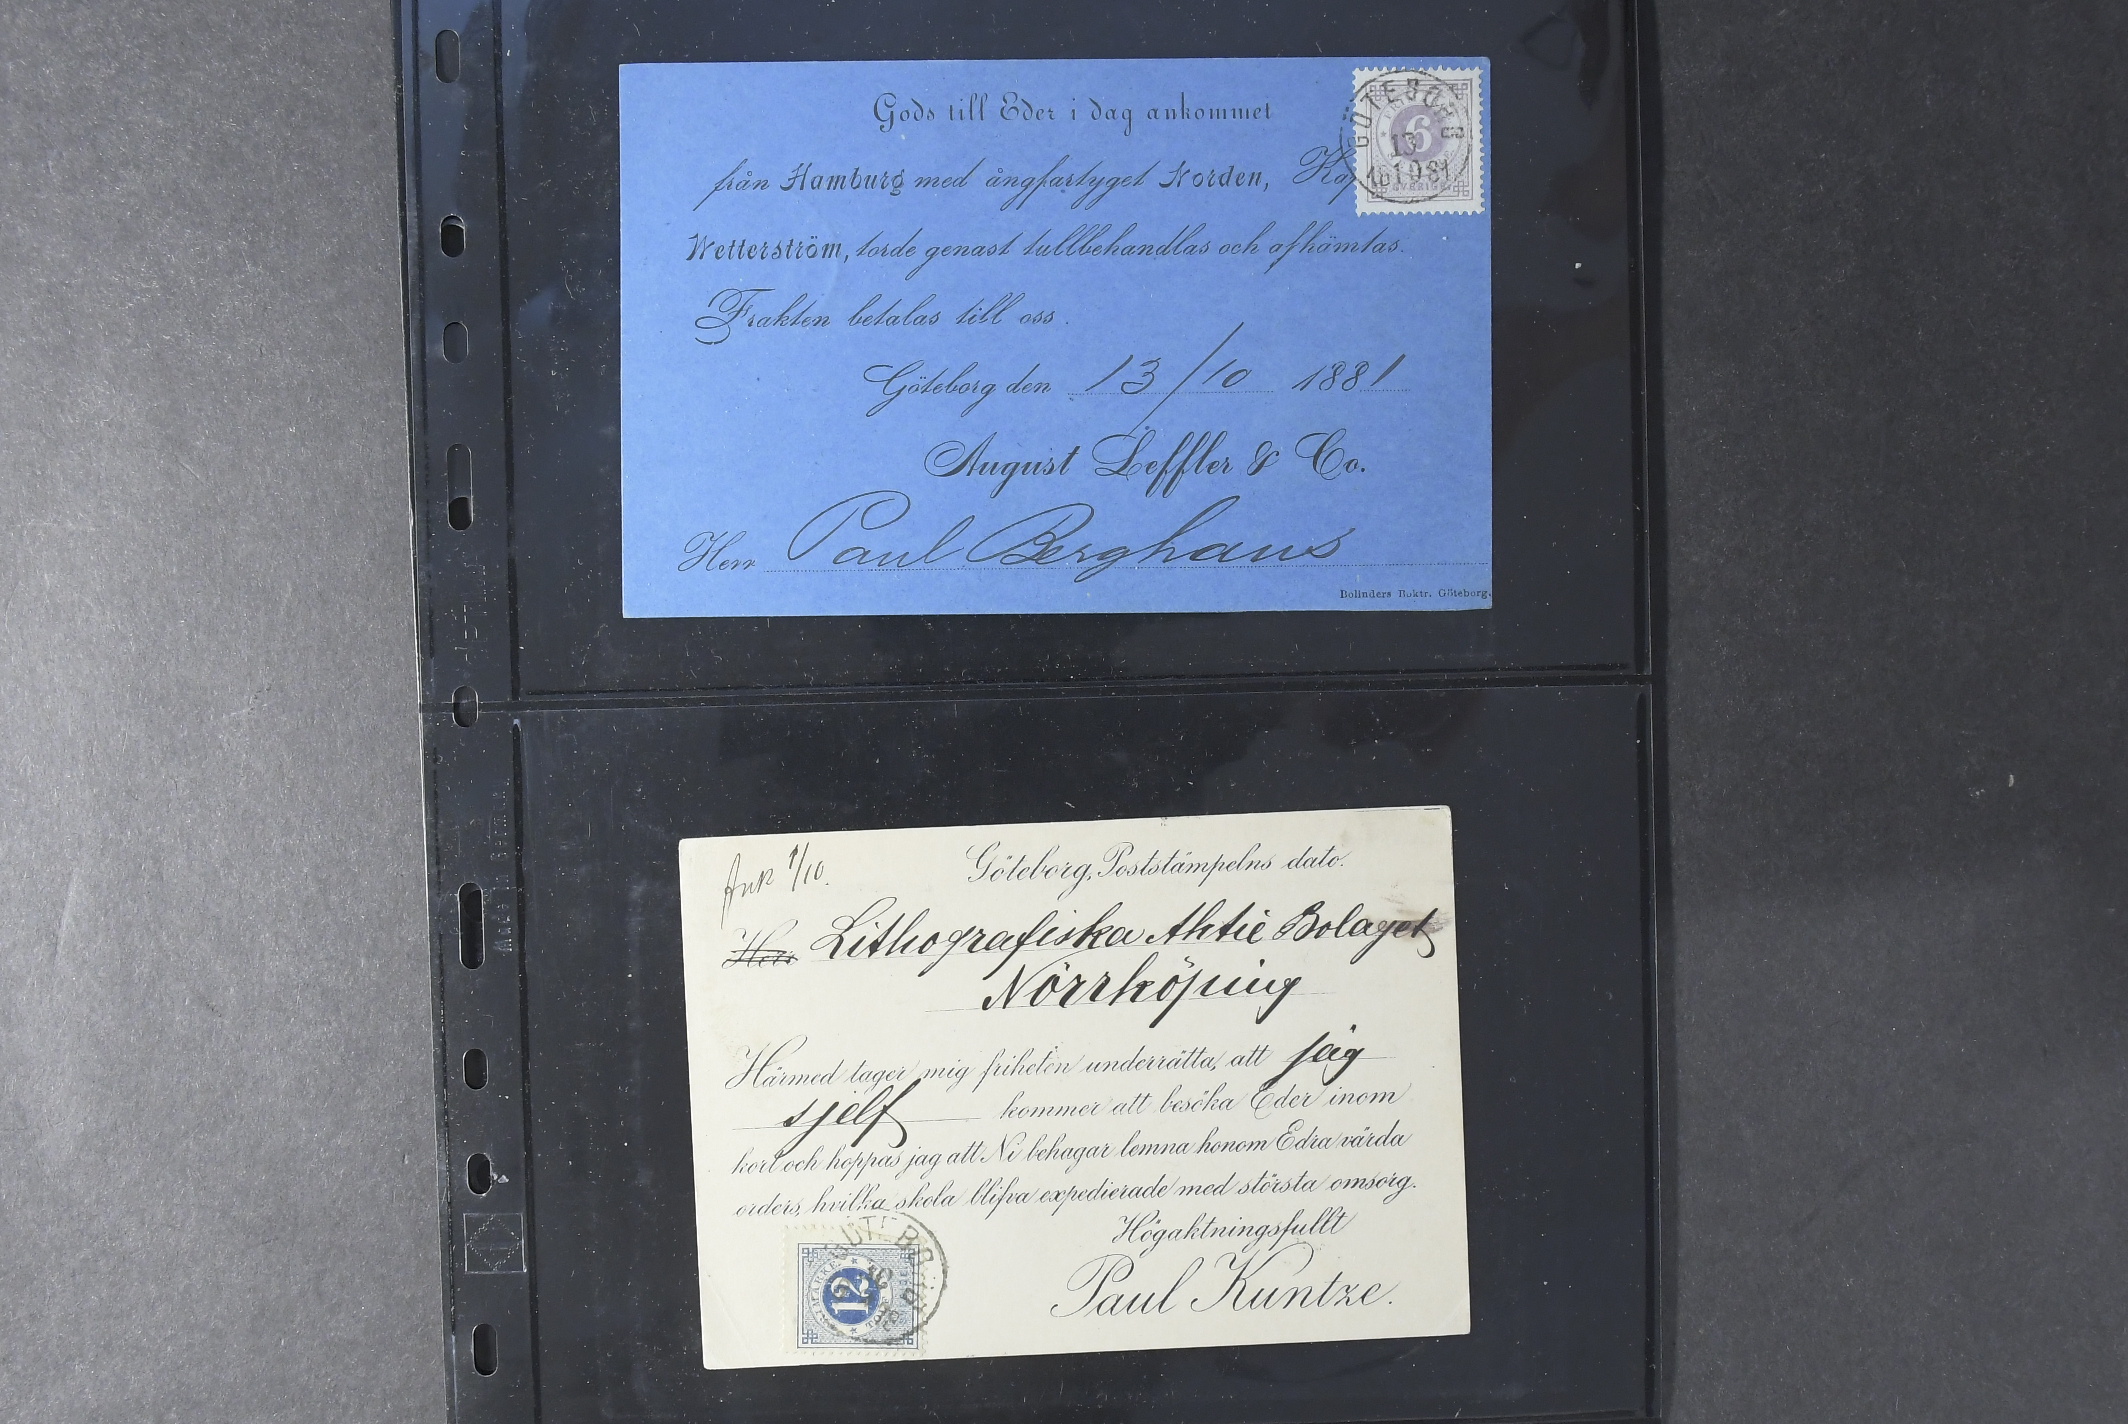 Gods till Eder i dag ankommet
från Hamburg med ångfartyget Norden,
Wetterström, torde genast tullbehandlas och afhämtas.
Frakten betalas till oss.
Göteborg den 13/10 1881
August Leffler & Co.
Herr Paul Berghaus
Bolinders Boktr. Göteborg.
GÖTEBORG
13
10 1881
6
SVERIGE
Ank 1/10.
Göteborg, Poststämpelns dato.
Herr Lithografiska Aktie Bolaget
Norrköping
Härmed tager mig friheten underrätta, att jag
sjelf kommer att besöka Eder inom
kort och hoppas jag att Ni behagar lemna honom Edra värda
orders, hvilka skola blifva expedierade med största omsorg.
Högaktningsfullt
Paul Kuntze.
12